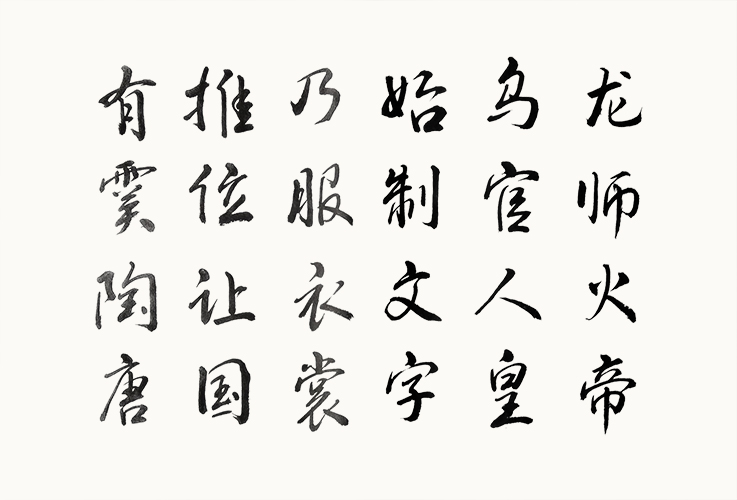 龙师火帝
鸟官人皇
始制文字
乃服衣裳
推位让国
有虞陶唐